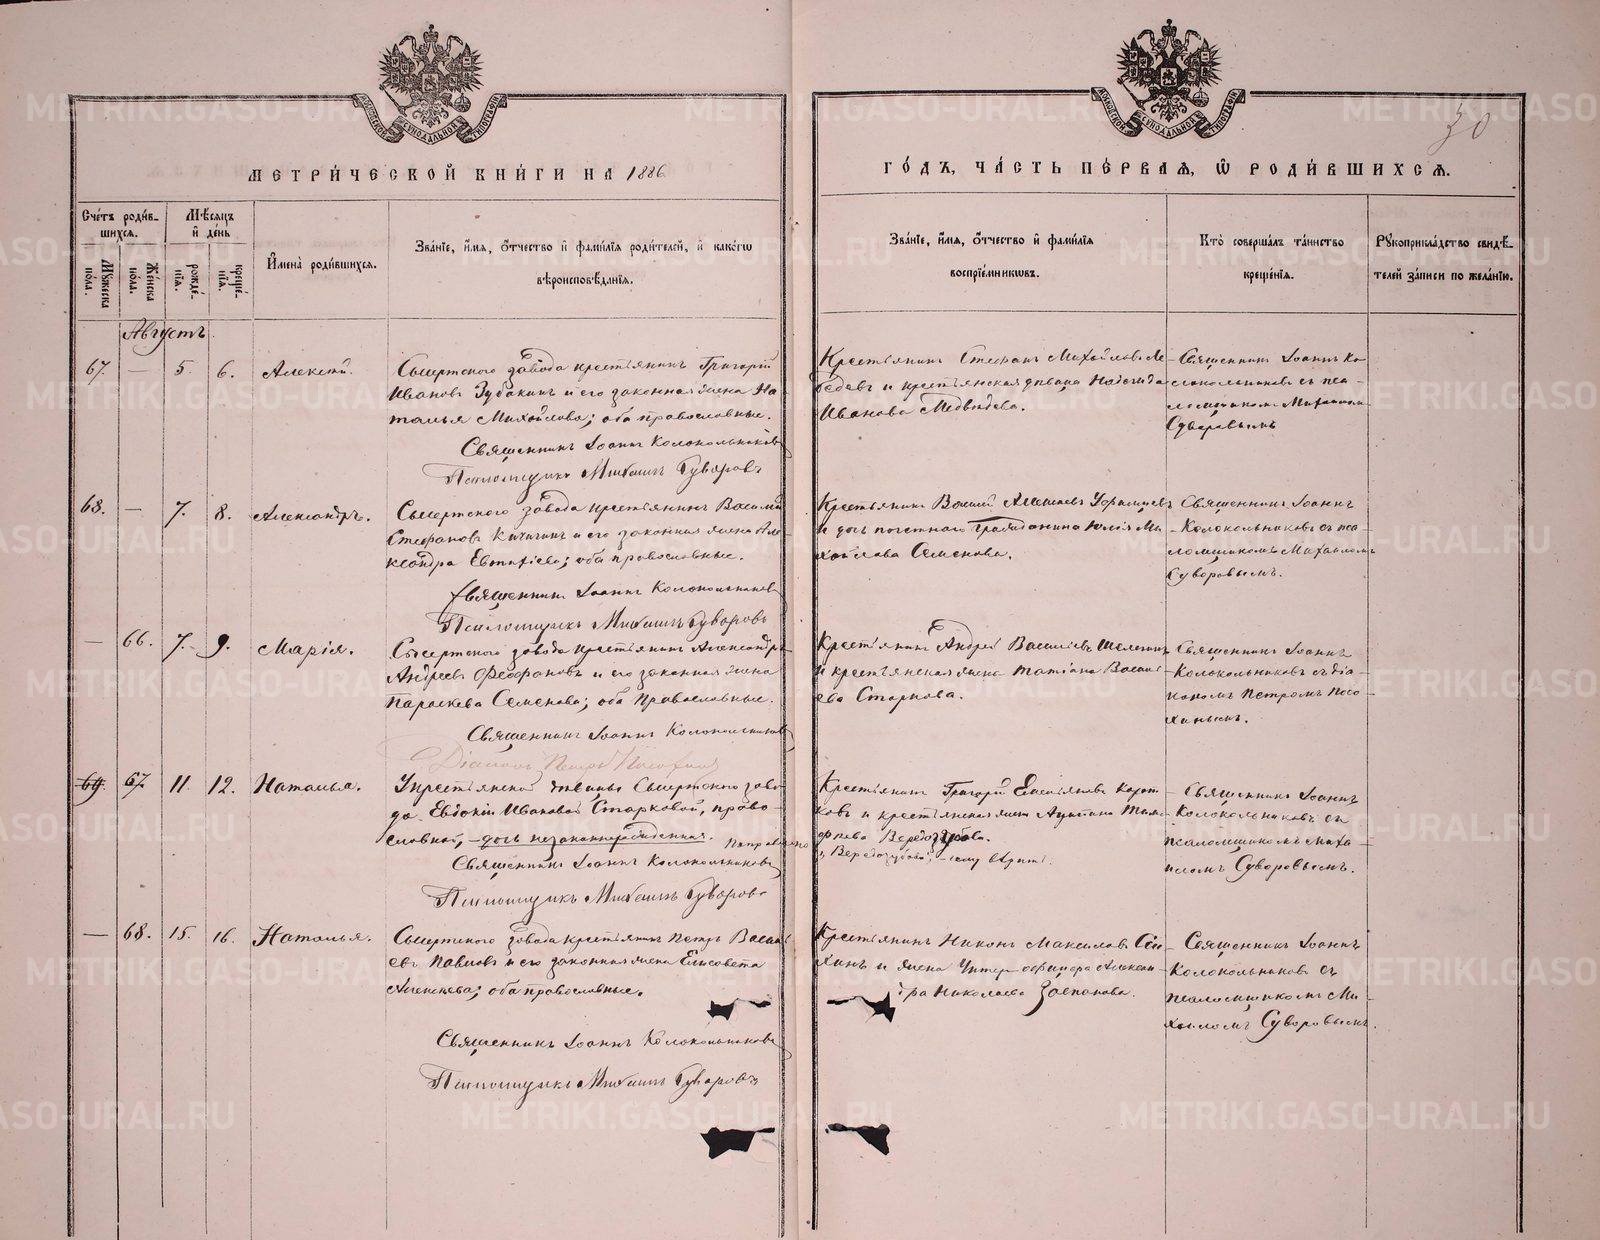 МЕТРИ́ЧЕСКОЙ КНИ́ГИ НА 1886
ГО́ДЪ, ЧА́СТЬ ПЕ́РВАЯ, Ѽ РОДИ́ВШИХСЯ.
30
Сче́тъ роди́в-
шихся.
Мꙋжеска по́ла.
Же́нска по́ла.
Мѣ́сяцъ и́ де́нь
рожде́нїя.
креще́нїя.
И҆мена̀ роди́вшихся.
Зва́нїе, и҆́мя, ѻ҆́тчество и҆ фами́лїя роди́телей, и҆ како́гѡ
вѣроисповѣ́данїя.
Зва́нїе, и҆́мя, ѻ҆́тчество и҆ фами́лїя
воспрїе́мникѡвъ.
Кто̀ соверша́лъ та́инство
креще́нїя.
Рꙋкоприкла́дство свидѣ́-
телей за́писи по жела́нїю.
Августъ
67. — 5. 6. Алексѣй.
Сысертскаго завода крестьянинъ Григорій
Ивановъ Зубакинъ и его законная жена На-
талья Михайлова; оба православные.
Священникъ Іоаннъ Колокольниковъ
Псаломщикъ Михаилъ Суворовъ
Крестьянинъ Стефанъ Михайловъ Ле-
бедевъ и крестьянская дѣвица Надежда
Иванова Медвѣдева.
Священникъ Іоаннъ Ко-
локольниковъ съ пса-
ломщикомъ Михаиломъ
Суворовымъ
68. — 7. 8. Александръ.
Сысертскаго завода крестьянинъ Василій
Стефановъ Кичигинъ и его законная жена Але-
ксандра Евгеніева; оба православные.
Священникъ Іоаннъ Колокольниковъ
Псаломщикъ Михаилъ Суворовъ
Крестьянинъ Василій Алексѣевъ
и дочь почетнаго Гражданина Юлія Ми-
хайлова Семенова.
Священникъ Іоаннъ
Колокольниковъ съ пса-
ломщикомъ Михаиломъ
Суворовымъ.
— 66. 7. 9. Марія.
Сысертскаго завода крестьянинъ Александръ
Андреевъ Феофановъ и его законная жена
Параскева Семенова; оба православные.
Священникъ Іоаннъ Колокольниковъ
Діаконъ Петръ Посохинъ
Крестьянинъ Андрей Васильевъ
и крестьянская жена Татіана Василь-
ева Старкова.
Священникъ Іоаннъ
Колокольниковъ съ діа-
кономъ Петромъ Посо-
хинымъ.
69. 67. 11. 12. Наталья.
У крестьянской дѣвицы Сысертскаго заво-
да Евдокіи Ивановой Старковой, право-
славной, — дочь незаконнорожденная.
Священникъ Іоаннъ Колокольниковъ
Псаломщикъ Михаилъ Суворовъ
Крестьянинъ Григорій Емельяновъ Корот-
ковъ и крестьянская жена Тимо-
феева Вередозубова.
Поправлено
„Вередозубова“, — сему вѣрить.
Священникъ Іоаннъ
Колокольниковъ съ
псаломщикомъ Миха-
иломъ Суворовымъ.
— 68. 15. 16. Наталья.
Сысертскаго завода крестьянинъ Петръ Василь-
евъ Павловъ и его законная жена Елисавета
Алексѣева; оба православные.
Священникъ Іоаннъ Колокольниковъ
Псаломщикъ Михаилъ Суворовъ
Крестьянинъ Никонъ Максимовъ
и жена Унтеръ-офицера Алексан-
дра Николаева
Священникъ Іоаннъ
Колокольниковъ съ
псаломщикомъ Ми-
хаиломъ Суворовымъ.
METRIKI.GASO-URAL.RU